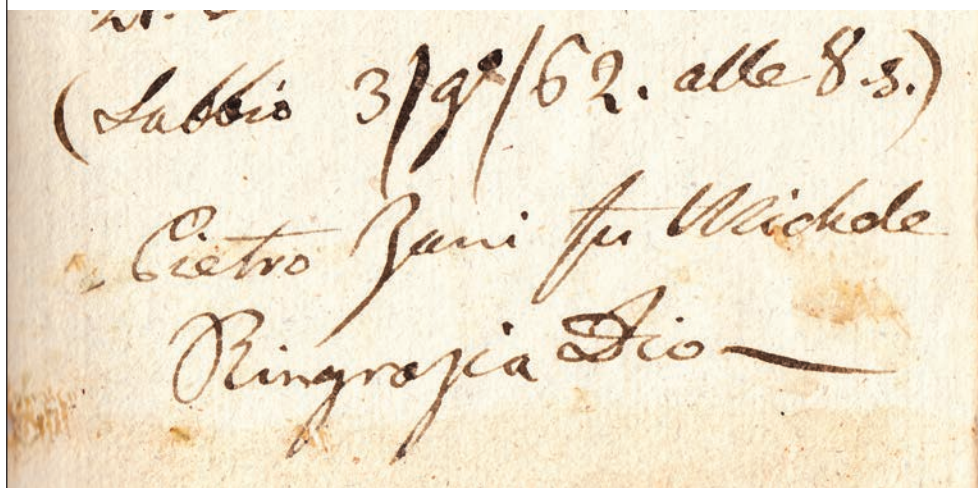 (Sabbio 3/9e/62. alle 8.s.)
Pietro Zani fu Michele
Ringrazia Dio